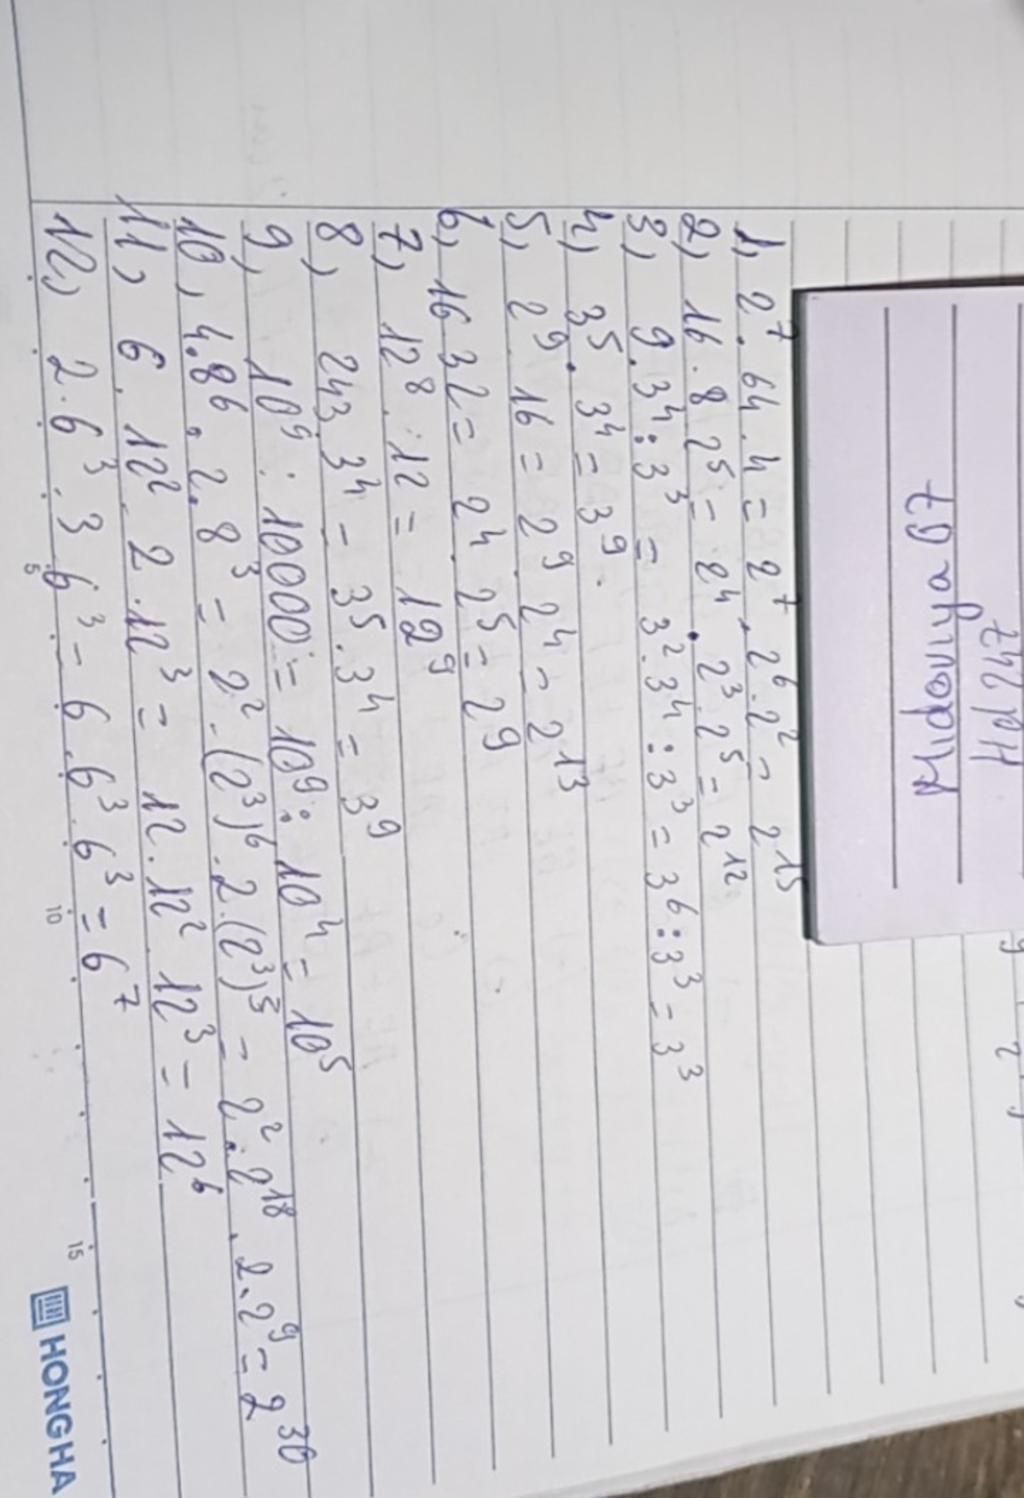 Мавлида 67
Нd 247
1, 2⁷. 64. 4 = 2⁷. 2⁶. 2² = 2¹⁵
2, 16. 8 2⁵ = 2⁴. 2³. 2⁵ = 2¹²
3, 9. 3⁴ : 3³ = 3². 3⁴ : 3³ = 3⁶ : 3³ = 3³
4, 3⁵. 3⁴ = 3⁹.
5, 2⁹. 16 = 2⁹ 2⁴ = 2¹³
6, 16 32 = 2⁴. 2⁵ = 2⁹
7, 12⁸. 12 = 12⁹
8, 243. 3⁴ = 3⁵. 3⁴ = 3⁹
9, 10⁹ : 10000 = 10⁹ : 10⁴ = 10⁵
10, 4.8⁶. 2.8³ = 2². (2³)⁶. 2. (2³)³ = 2². 2¹⁸. 2. 2⁹ = 2³⁰
11, 6. 12². 2. 12³ = 12. 12² 12³ = 12⁶
12, 2. 6³. 3 6³ = 6. 6³. 6³ = 6⁷
5
10
15
HONG HA